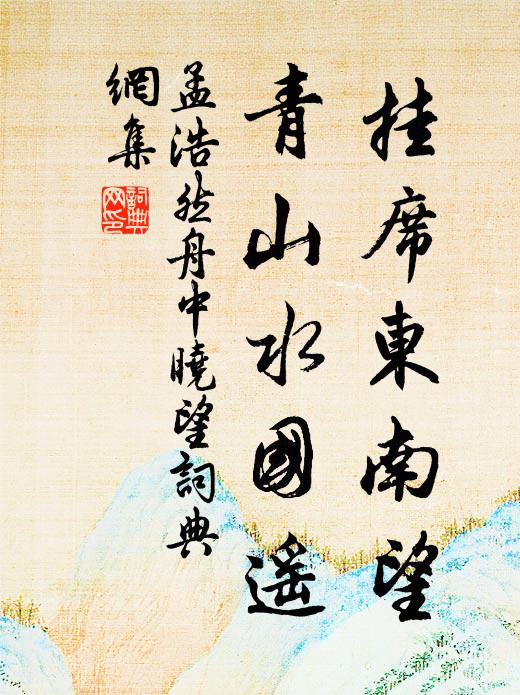 挂席東南望
青山水國遥
孟浩然舟中曉望詞典
網集
詞典
网印